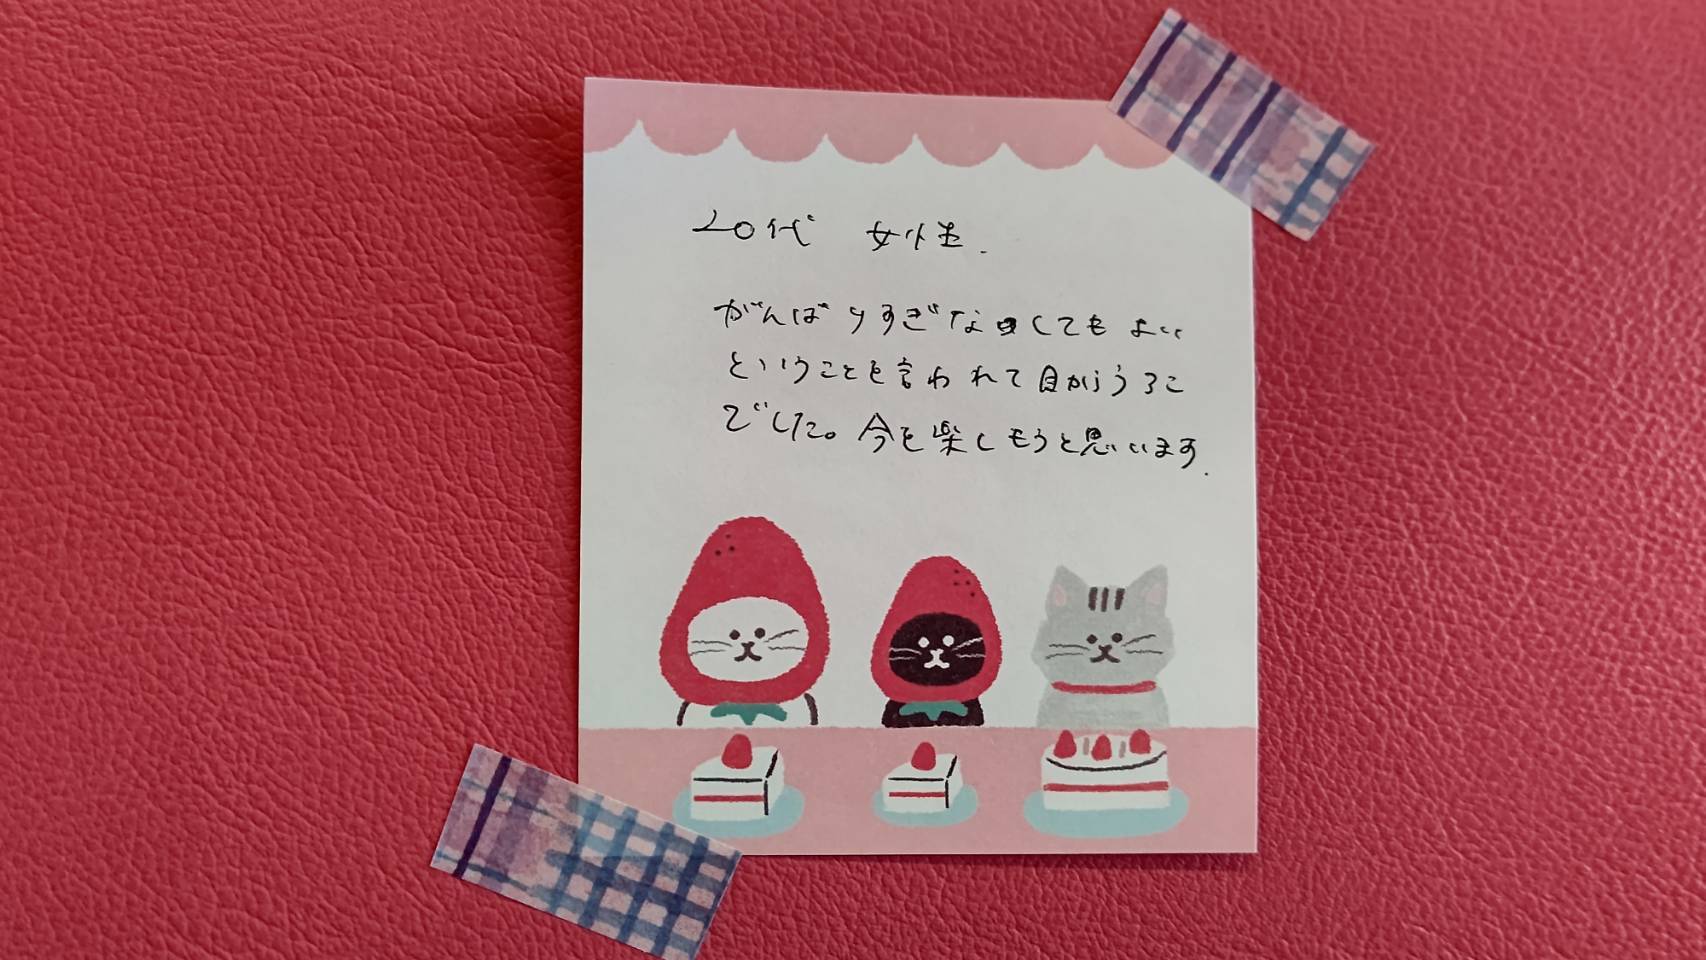 20代 女性.
がんばりすぎなくてもよい
ということを言われて目からうろこ
でした。今を楽しもうと思います.